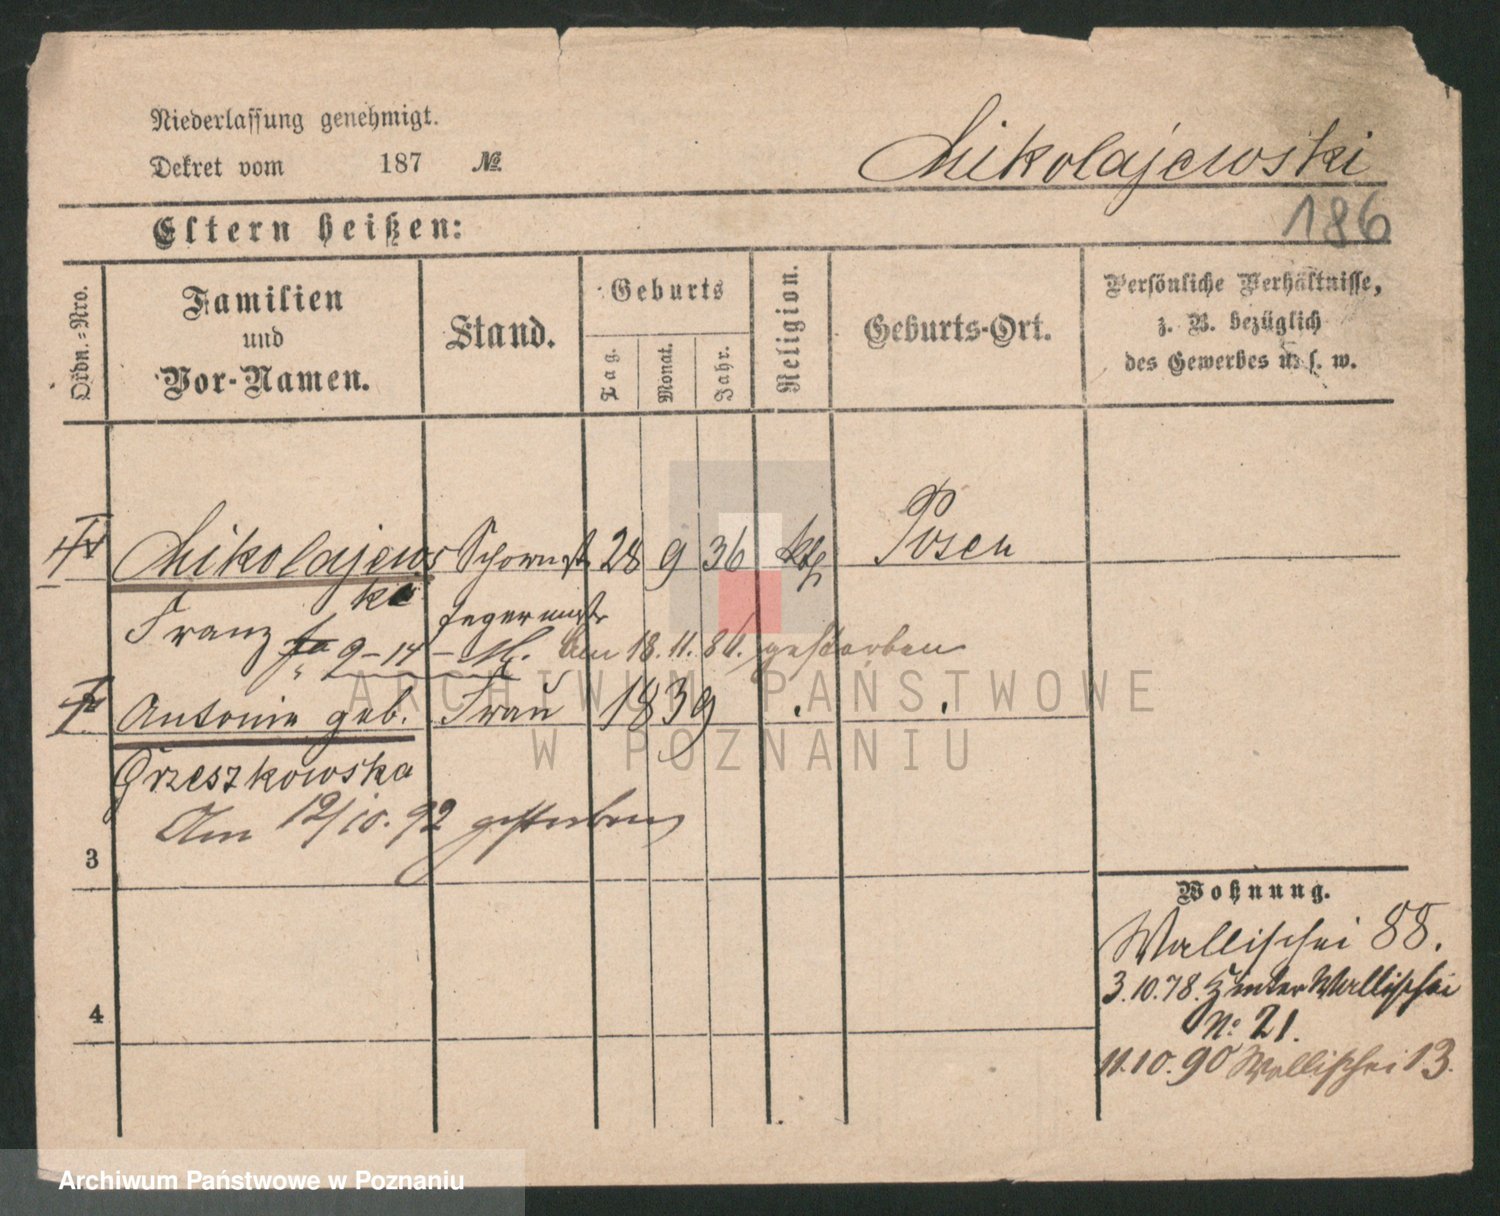 Niederlassung genehmigt.
Dekret vom 187 №
Mikolajewski
Eltern heißen:
186
Ordn.-Nro.
Familien
und
Vor-Namen.
Stand.
Geburts
Tag.
Monat.
Jahr.
Religion.
Geburts-Ort.
Persönliche Verhältnisse,
z. B. bezüglich
des Gewerbes u. s. w.
Mikolajews Schornst 28 9 36 kth Posen
ki
Franz fegermstr
9-14-M. am 18.11.84. gestorben
Antonie geb. Frau 1839
Grzeszkowska
Am 12/10.92 gestorben
3
4
Wohnung.
Wallischei 88.
3.10.78. Hinter Wallischei
No 21.
11.10.90 Wallischei 13.
ARCHIWUM PAŃSTWOWE
W POZNANIU
Archiwum Państwowe w Poznaniu